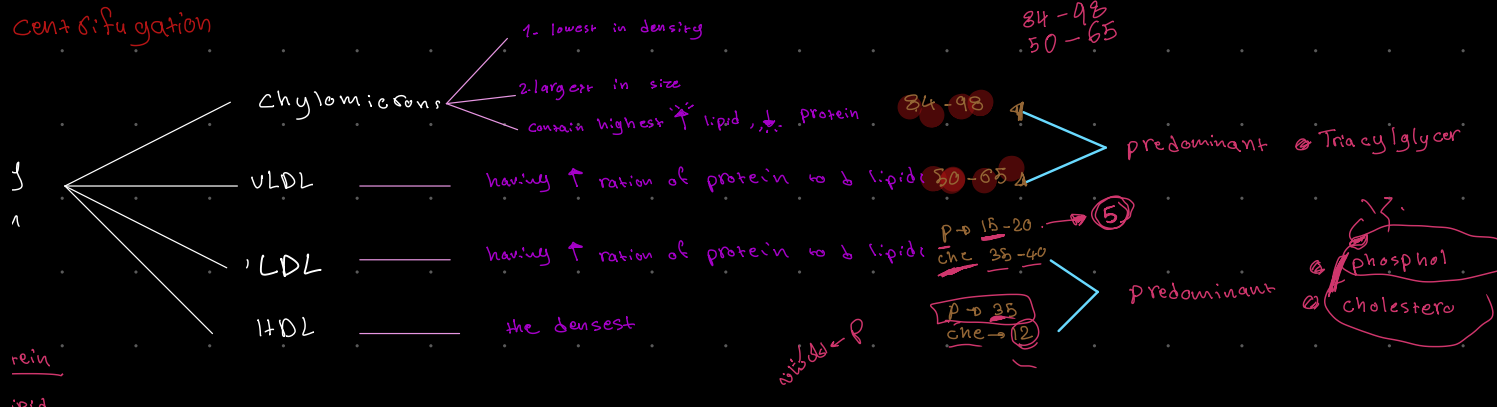 Centrifugation
84-98
50-65
1- lowest in density
2. largest in size
Chylomicrons
contain highest ↑ lipid, ↓ protein
84-98
predominant
Triacylglycer
VLDL
having ↑ ration of protein to lipids
50-65
P → 15-20 → 5
LDL
having ↑ ration of protein to lipids
che 35-40
phosphol
predominant
cholestero
P → 35
HDL
the densest
che → 12
← P
rein